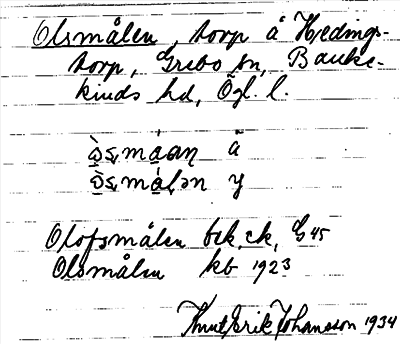 Olsmålen, torp å Hedings-
torp, Grebo sn, Banke-
kinds hd, Ögl. l.
ä
y
Olofsmålen bek. ek. G 45
Olsmålen kb 1923
Knut Erik Johansson 1934